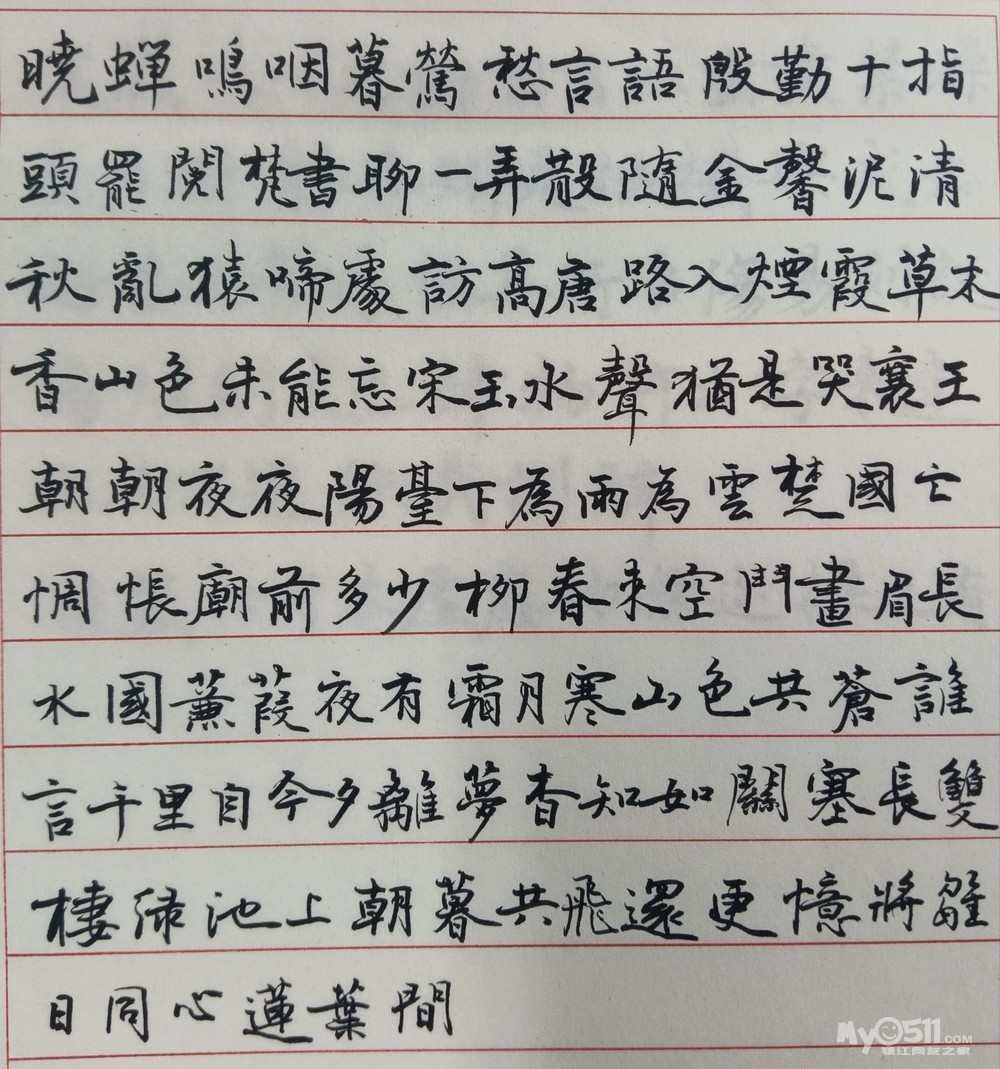 曉蟬鳴咽暮鶯愁言語殷勤十指
頭罷閱梵書聊一弄散隨金磬泥清
秋亂猿啼處訪高唐路入煙霞草木
香山色未能忘宋玉水聲猶是哭襄王
朝朝夜夜陽臺下為雨為雲楚國亡
惆悵廟前多少柳春來空鬥畫眉長
水國蒹葭夜有霜月寒山色共蒼誰
言千里自今夕離夢杳如關塞長雙
棲綠池上朝暮共飛還更憶將雛
日同心蓮葉間
My0511.COM
镇江网友之家